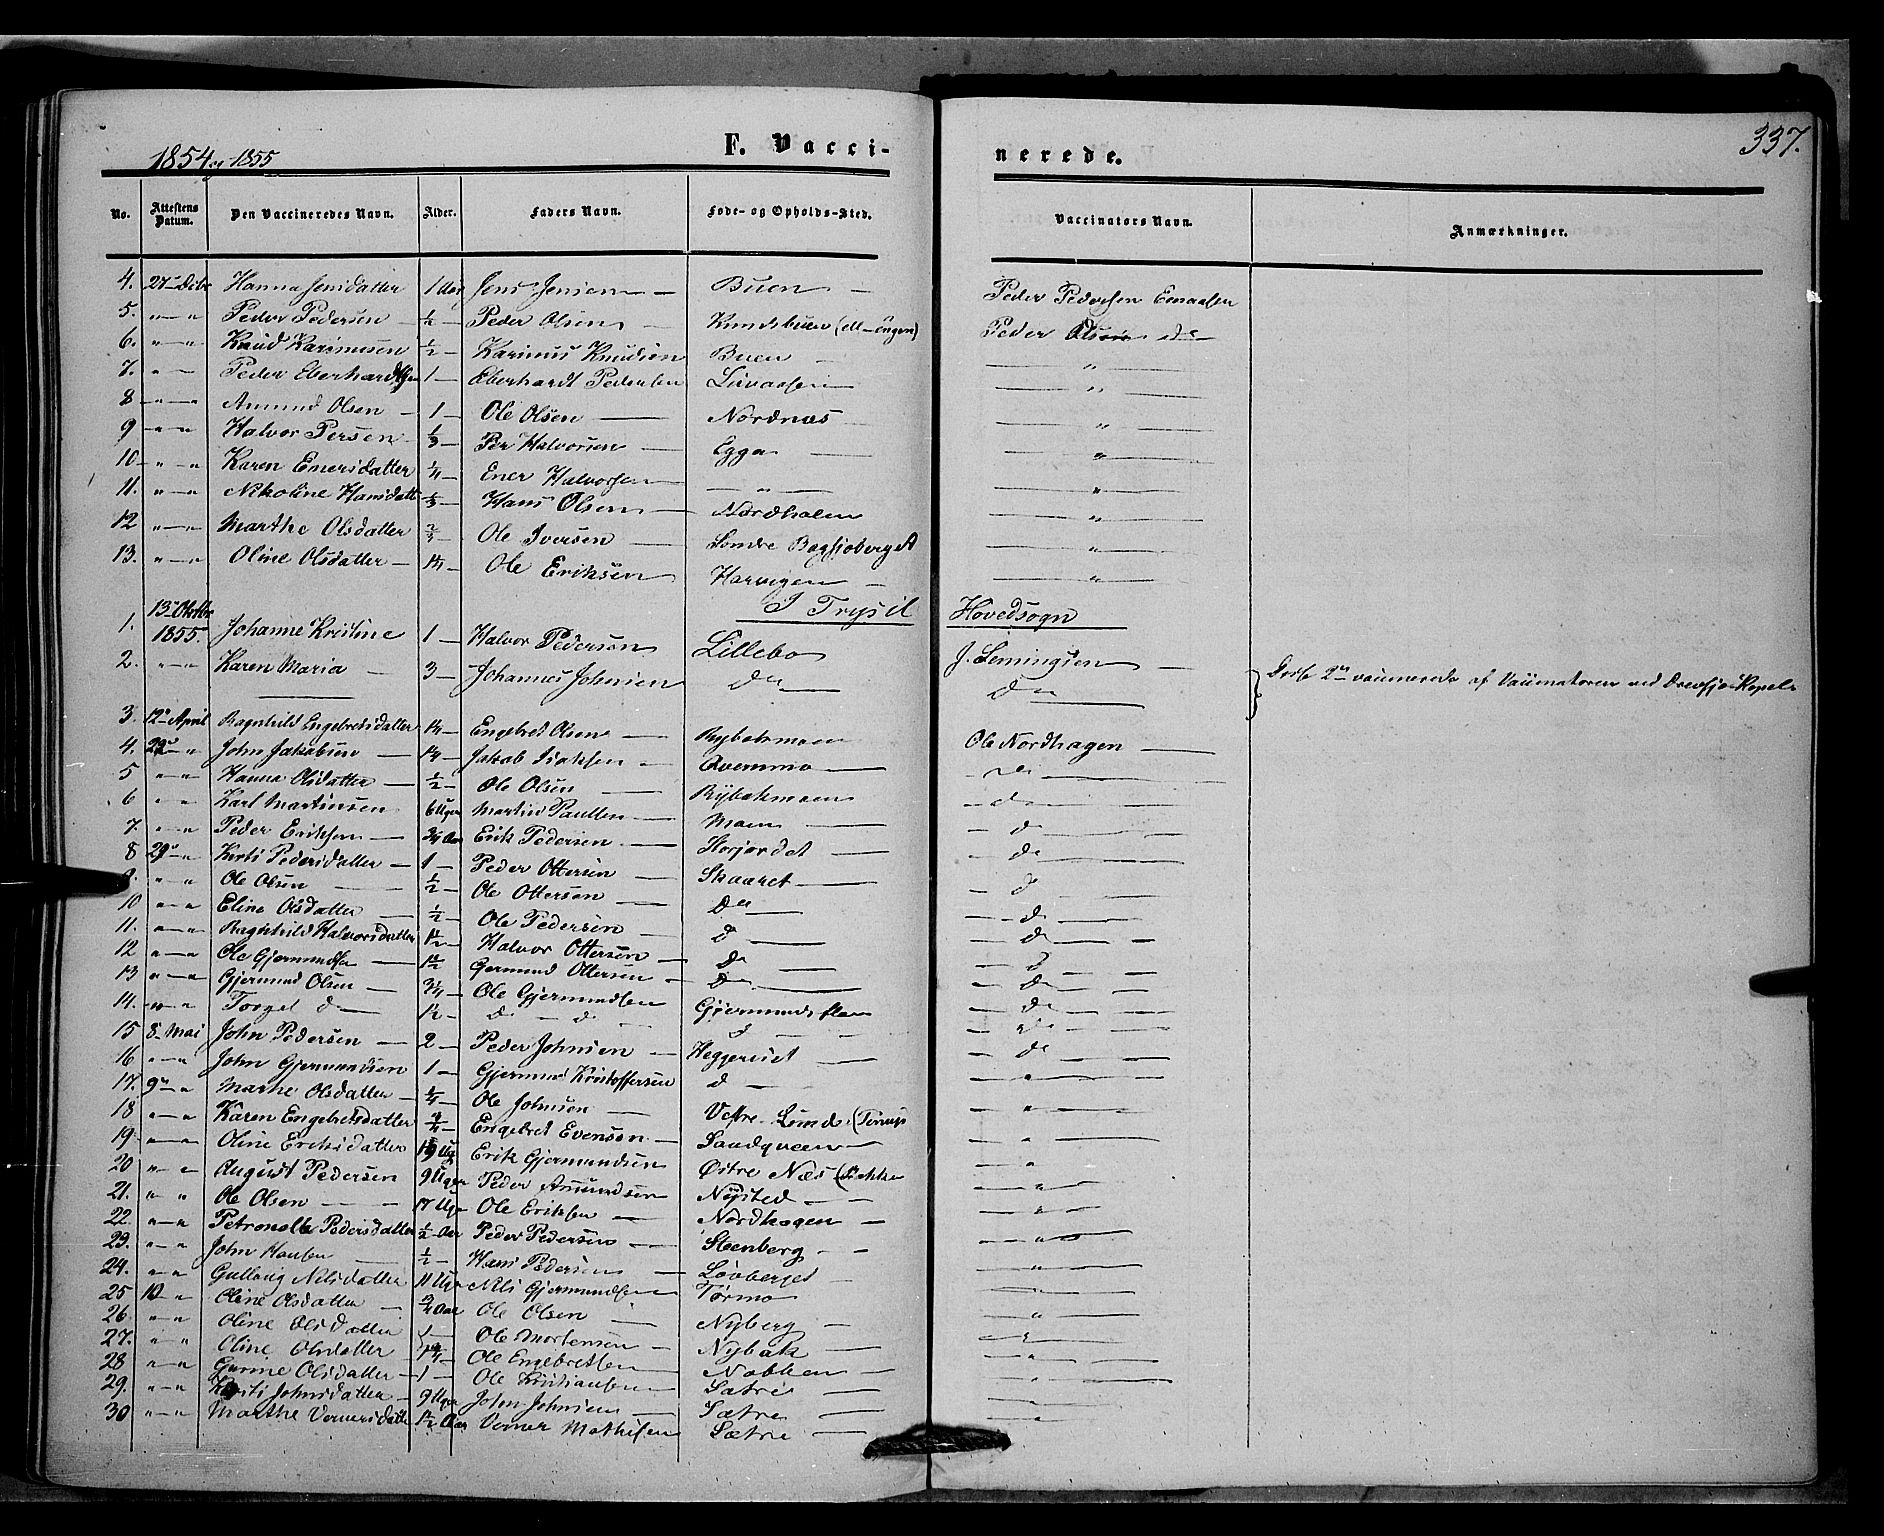 1854 og 1855 F. Vacci-nerede. 337.
No. Attestens Datum. Den Vaccineredes Navn. Alder. Faders Navn. Føde- og Opholds-Sted. Vaccinators Navn. Anmærkninger.
4. 27 Debr Hanna Jensdatter 1 Aar Jens Jensen Buen Peder Pedersen
5. " " Peder Pedersen 1/2 Peder Olsen Peder Olsen do
6. " " Knud Karinusen 1/2 Karinus Knudsen Buen "
7. " " Peder Eberhardtsen 1 Eberhardt Pedersen "
8 " " Amund Olsen 1 Ole Olsen Nordnæs "
9 " " Halvor Persen Per Halvorsen Egga "
10 " " Karen Enersdatter 1/4 Ener Halvorsen " "
11. " " Nikoline Hansdatt Hans Olsen Nordhalen "
12 " " Marthe Olsdatter Ole Iversen Søndre "
13. " " Oline Olsdatter 1 1/4 Ole Eriksen Harvigen "
I Trysil Hovedsogn
1. 13 Oktbr 1855. Johanne Kristine 1 Halvor Pedersen Lillebo J. Lemingsen
2. " " Karen Maria 3 Johannes Johnsen do do Disse 2 vaccinerede af Vaccinatoren ved Drevsjø Kapel
3. 12 April Ragnhild Engebretsdatter 1 1/4 Engebret Olsen Ole Nordhagen
4. 22 " John Jakobsen 1 1/4 Jakob Isaksen Qvernmo do
5 " " Hanna Olsdatter 1/2 Ole Olsen do
6 " " Karl Martinsen 6 Uger Martin Paulsen Moen do
7. " " Peder Eriksen 3/4 Aar Erik Pedersen Storjordet do
8 29 " Kirsti Pedersdatter 1 Peder Ottersen Skaaret d
9. " " Ole Olsen 1/2 Ole Ottersen do do
10 " " Eline Olsdatter 1/2 Ole Pedersen d do
11. " " Ragnhild Halvorsdatter 1 1/2 Halvor Ottersen do d
12 " " Ole Gjermundsen 1 1/2 Gjermund Ottersen do do
13 " " Gjermund Olsen 3 1/4 Ole Gjermundsen Gjermundsflen do
14. " " Torgel do 1 1/2 d d d do
15 8 Mai John Pedersen 2 Peder Johnsen Heggeriset do
16 " " John Gjermundsen 1 Gjermund Kristoffersen d "
17. 9 " Marthe Olsdatter Ole Johnsen Vestre Lunde "
18 " " Karen Engebretsdatter Engebret Evensen Sandqveen "
19 " " Oline Eriksdatter 19 Ug Erik Gjermundsen Østre Næs "
20 " " August Pedersen 9 Uger Peder Amundsen Nysted "
21. " " Ole Olsen 17 Ugr Ole Eriksen Nordhagen "
22. " " Petronelle Pedersdatter 1/2 Aar Peder Pedersen Steenberg "
23. " " John Hansen 1/2 Hans Pedersen Løvberget "
24. " " Gullaug Nilsdatter 11 Ugr Nils Gjermundsen Tørmo "
25 10 " Oline Olsdatter Aar Ole Olsen Nyberg "
26 " " Oline Olsdatter 1 Ole Mortensen Nybak "
27. " " Oline Olsdatter Ole Engebretsen Nabben "
28 " " Gurine Olsdatter 1 Ole Kristiansen Sætre "
29. " " Kirsti Johnsdatter 9 Uger John Johnsen Sætre "
30 " " Marthe Vernersdatte 1 1/2 Aar Verner Mathisen Sætre "